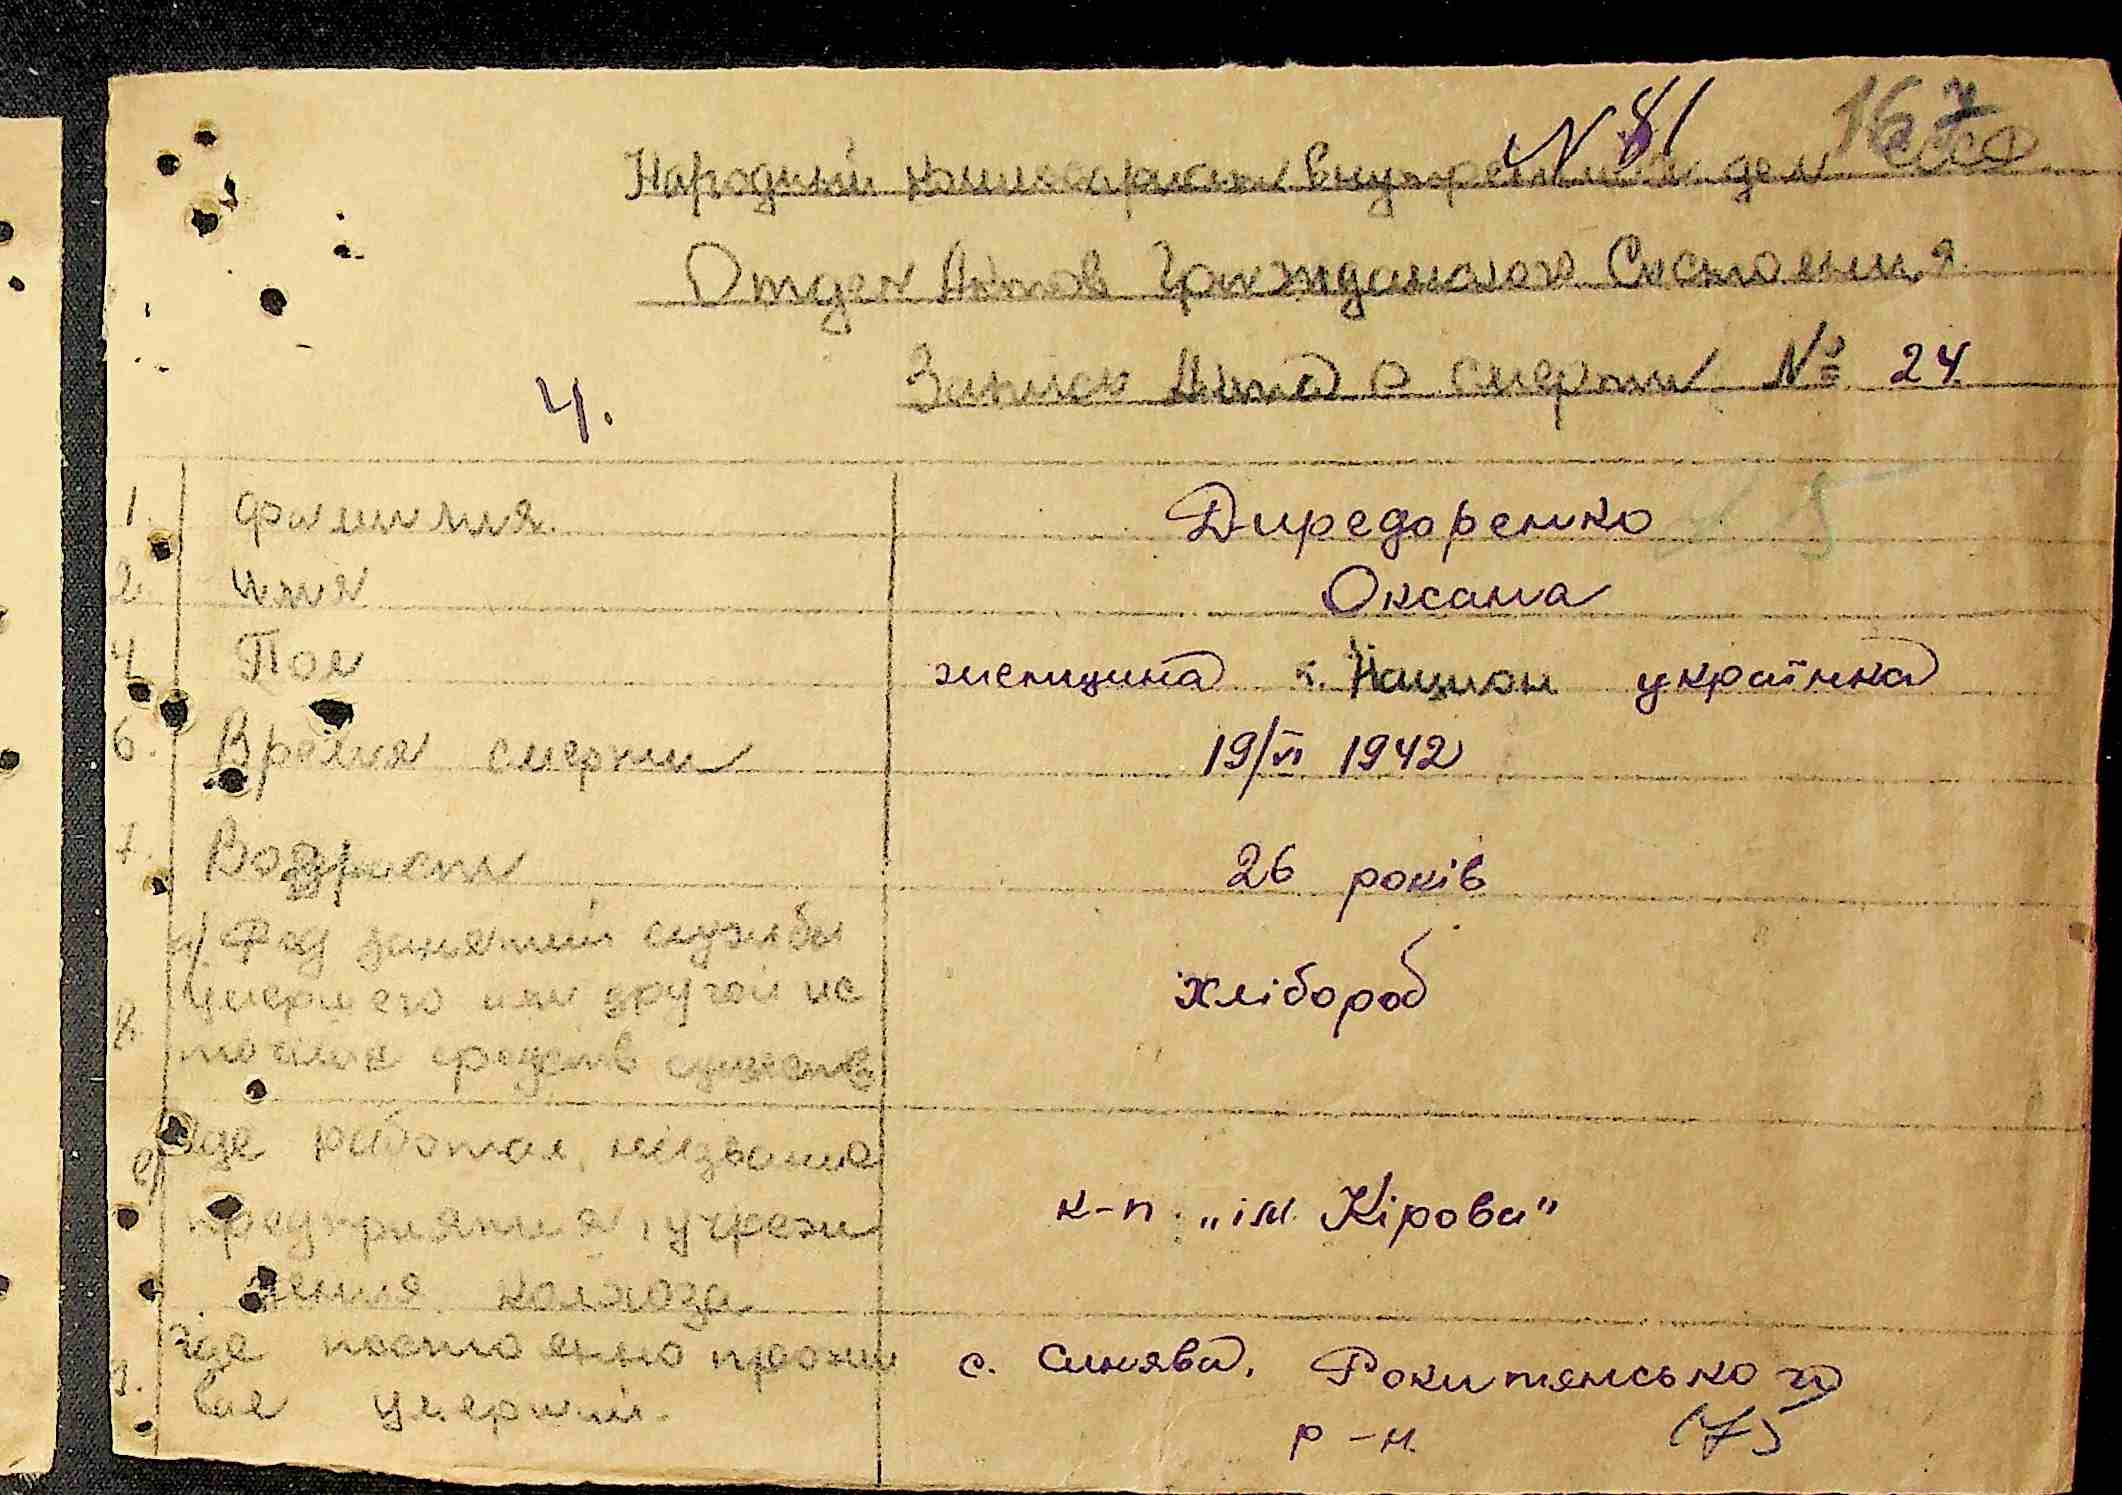 N 81
167
Народный комиссариат внутренних дел СССР
Отдел Актов Гражданского Состояния
Запись Акта о смерти № 24
4.
1. Фамилия Диредоренко
2. имя Оксана
4. Пол женщина 5. Национ українка
6. Время смерти 19/VI 1942
7. Возраст 26 років
а) Род занятий службы
8. умершего или другой ис хлібороб
точник средств существ
в) где работал, название
предприятия, учреж к-п. „ім. Кірова"
дения колхоза
9. где постоянно прожи с. Синява, Рокитянського
вал умерший. р-н. 75